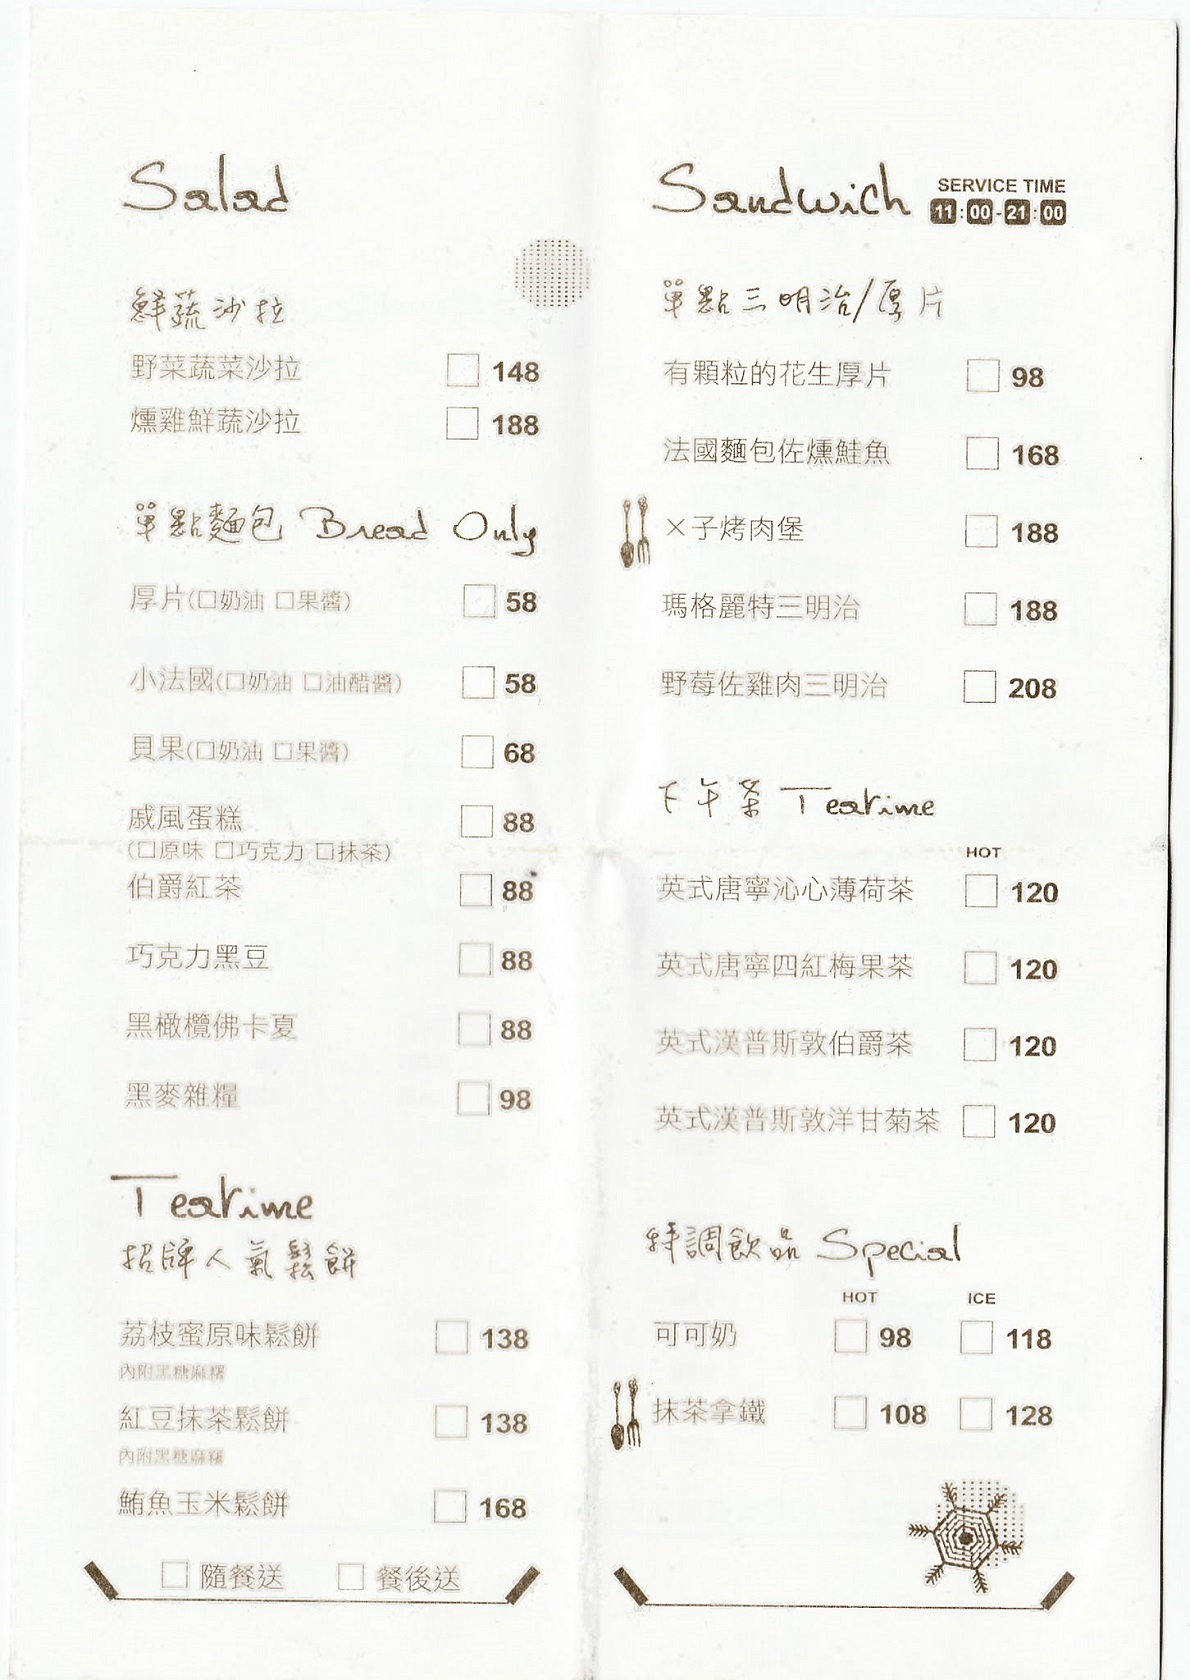 Salad
鮮蔬沙拉
野菜蔬菜沙拉 □ 148
燻雞鮮蔬沙拉 □ 188
單點麵包 Bread Only
厚片(□奶油 □果醬) □ 58
小法國(□奶油 □油醋醬) □ 58
貝果(□奶油 □果醬) □ 68
戚風蛋糕 □ 88
(□原味 □巧克力 □抹茶)
伯爵紅茶 □ 88
巧克力黑豆 □ 88
黑橄欖佛卡夏 □ 88
黑麥雜糧 □ 98
Teatime
招牌人氣鬆餅
荔枝蜜原味鬆餅 □ 138
內附黑糖麻糬
紅豆抹茶鬆餅 □ 138
內附黑糖麻糬
鮪魚玉米鬆餅 □ 168
□ 隨餐送 □ 餐後送
Sandwich SERVICE TIME
11:00-21:00
單點三明治/厚片
有顆粒的花生厚片 □ 98
法國麵包佐燻鮭魚 □ 168
×子烤肉堡 □ 188
瑪格麗特三明治 □ 188
野莓佐雞肉三明治 □ 208
下午茶 Teatime
HOT
英式唐寧沁心薄荷茶 □ 120
英式唐寧四紅梅果茶 □ 120
英式漢普斯敦伯爵茶 □ 120
英式漢普斯敦洋甘菊茶 □ 120
特調飲品 Special
HOT ICE
可可奶 □ 98 □ 118
抹茶拿鐵 □ 108 □ 128